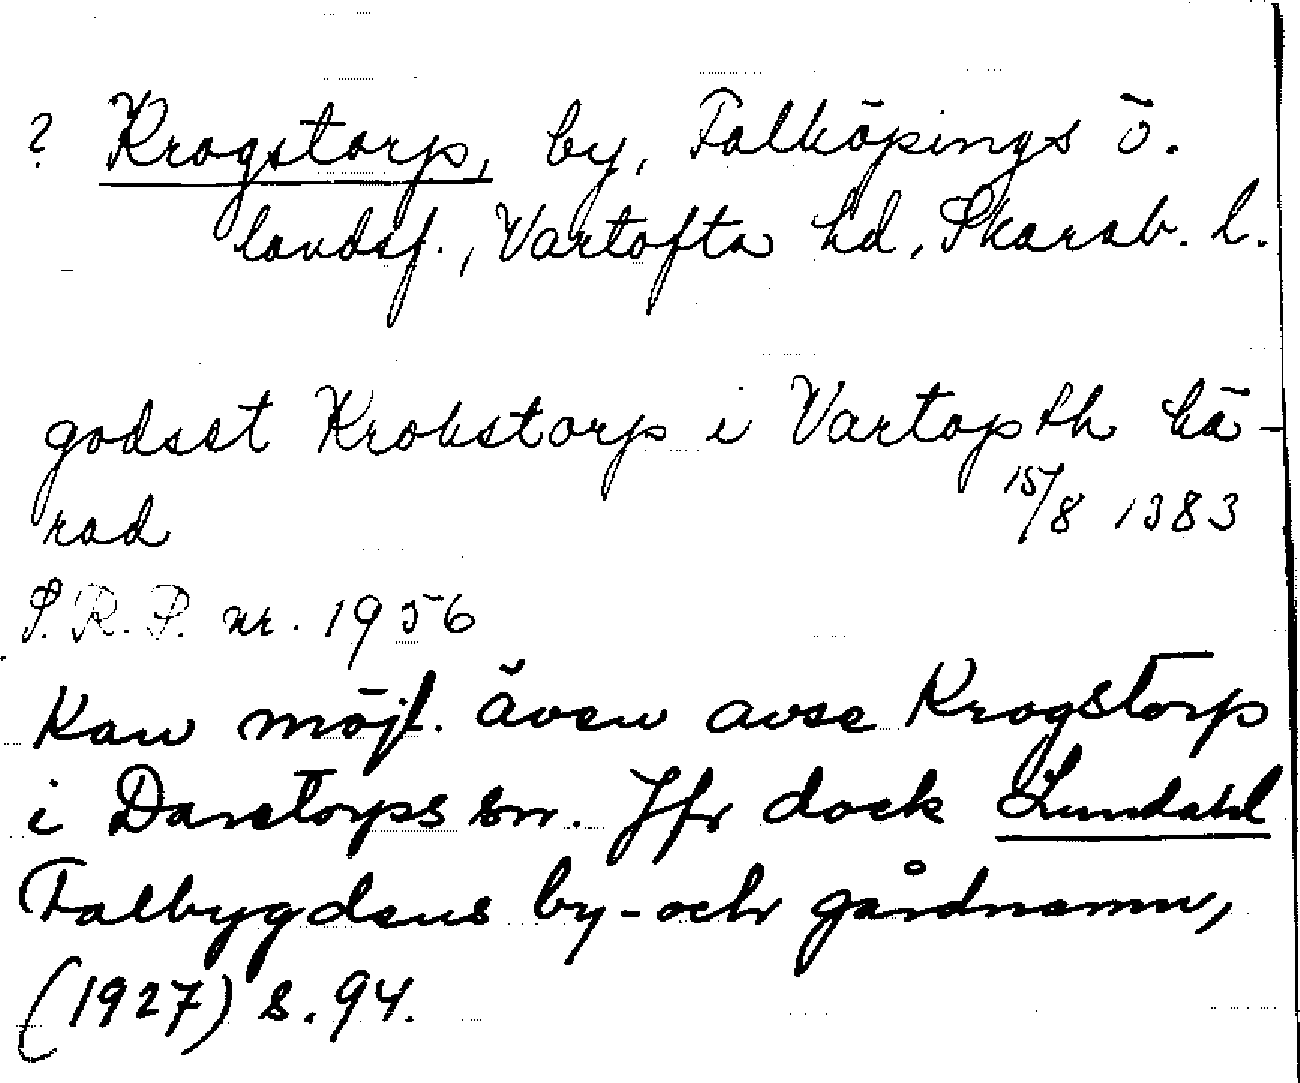 ? Krogstorp, by, Falköpings ö.
landsf., Vartofta hd, Skarab. l.
godset Krokstorp i Vartopth hä-
rad
15/8 1383
S.R.P. nr. 1956
Kan möjl. även avse Krogstorp
i Daretorps sn. Jfr dock Lundahl
Falbygdens by- och gårdnamn,
(1927) s. 94.